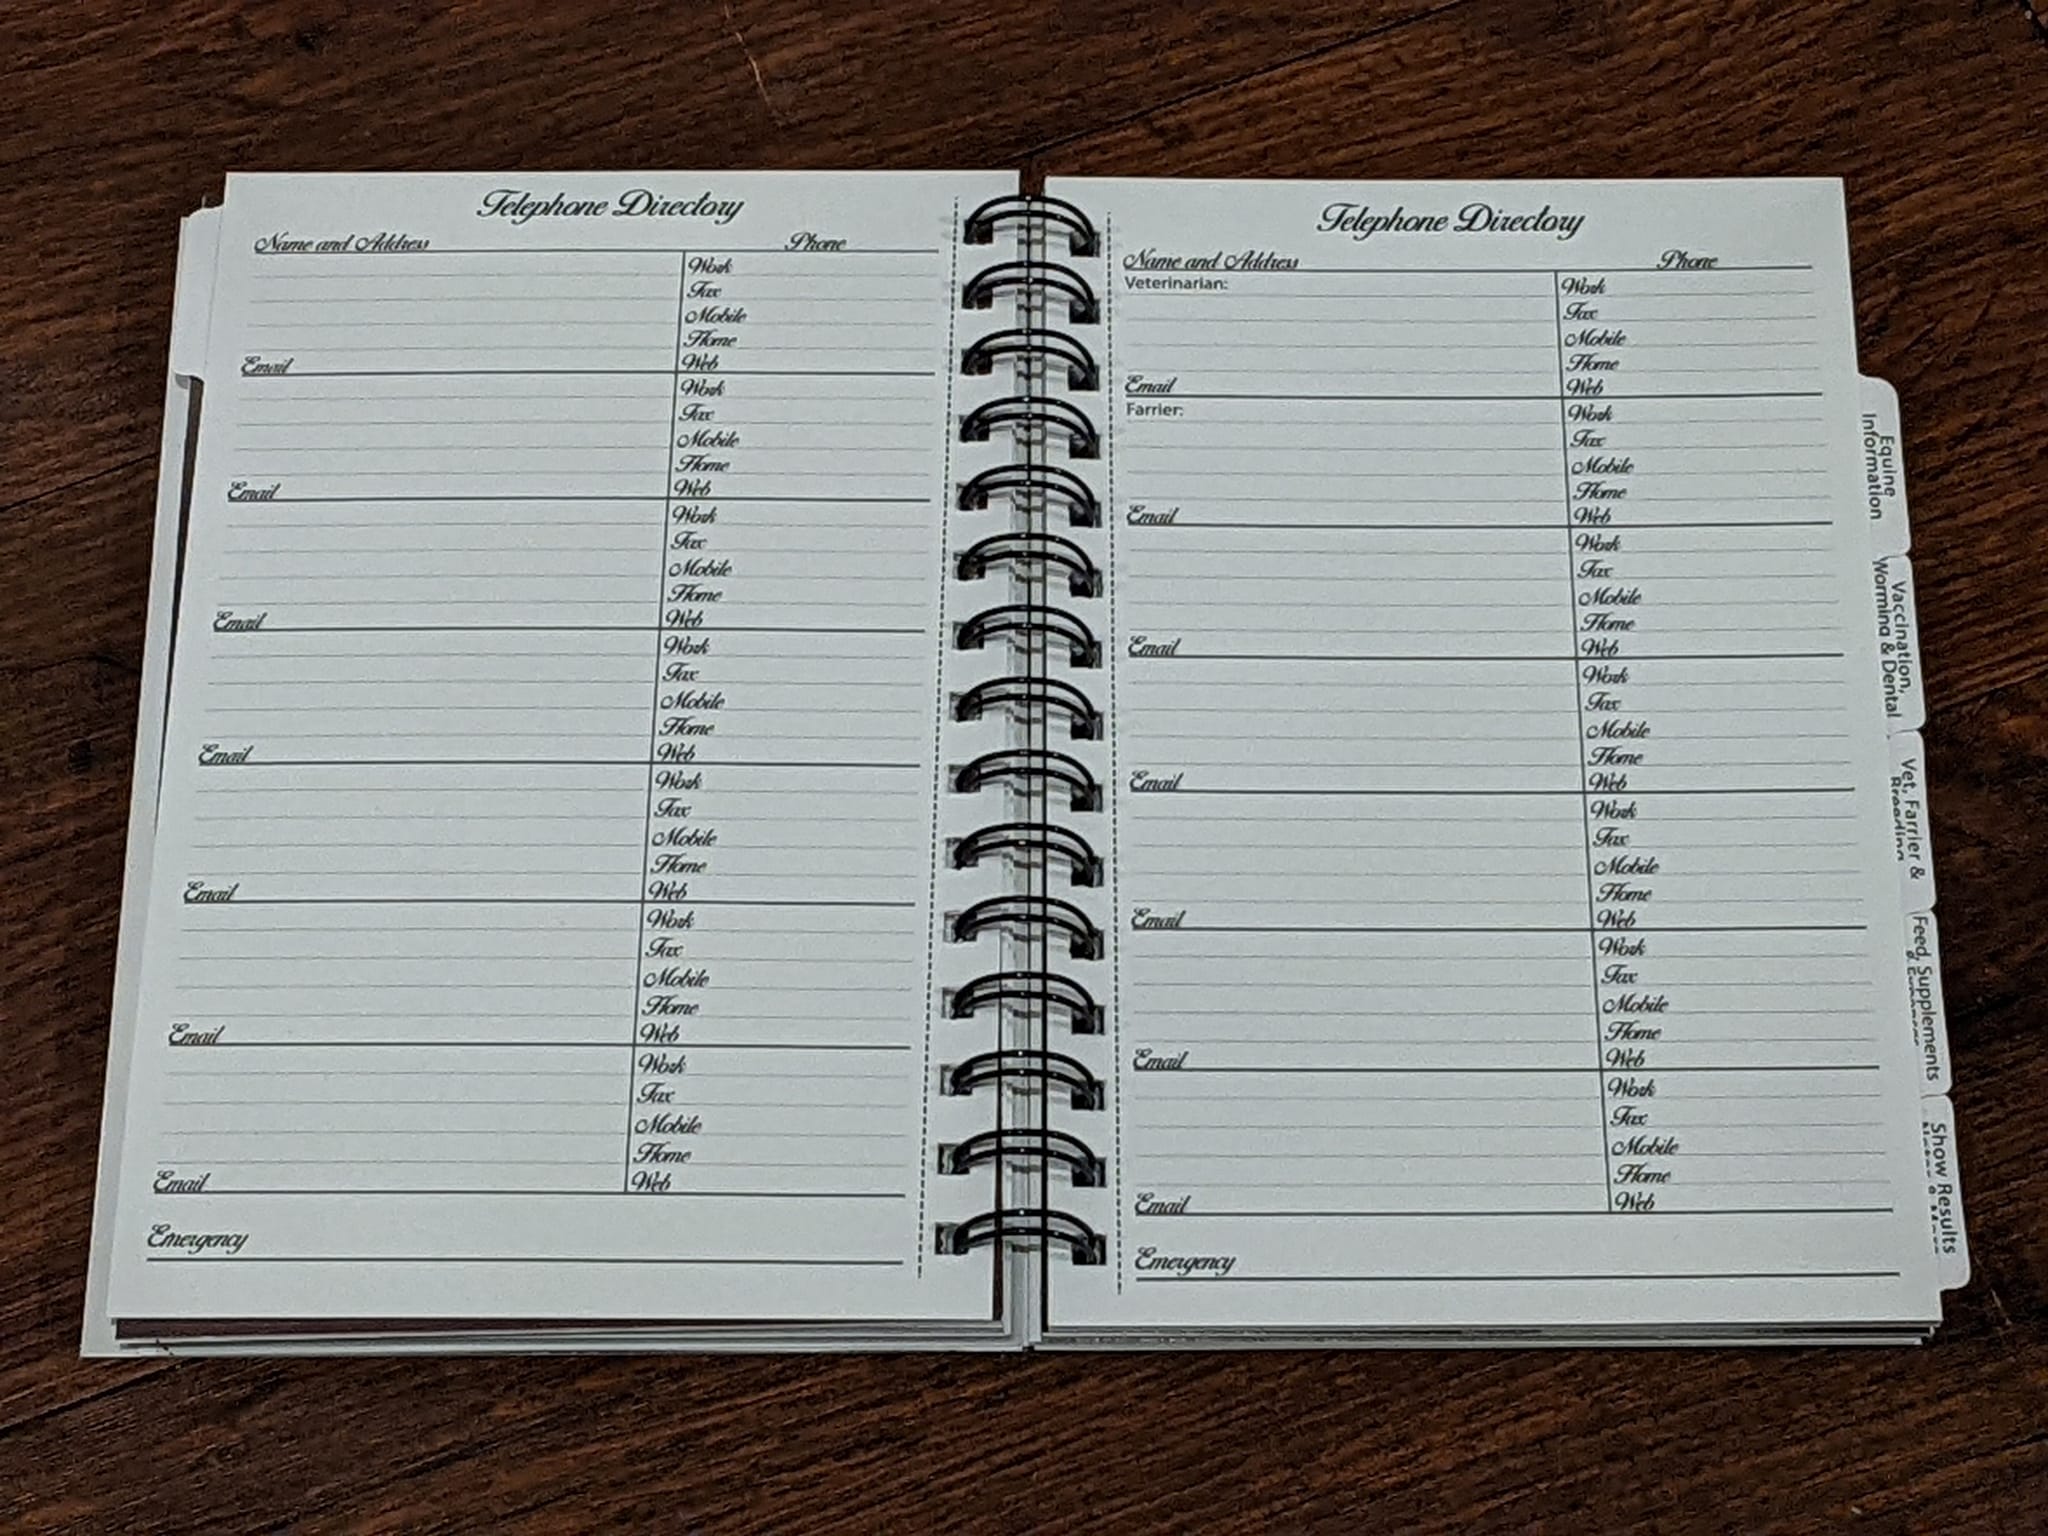 Telephone Directory
Name and Address Phone
Work
Fax
Mobile
Home
Email Web
Work
Fax
Mobile
Home
Email Web
Work
Fax
Mobile
Home
Email Web
Work
Fax
Mobile
Home
Email Web
Work
Fax
Mobile
Home
Email Web
Work
Fax
Mobile
Home
Email Web
Work
Fax
Mobile
Home
Email Web
Emergency
Telephone Directory
Name and Address Phone
Veterinarian: Work
Fax
Mobile
Home
Email Web
Farrier: Work
Fax
Mobile
Home
Email Web
Work
Fax
Mobile
Home
Email Web
Work
Fax
Mobile
Home
Email Web
Work
Fax
Mobile
Home
Email Web
Work
Fax
Mobile
Home
Email Web
Work
Fax
Mobile
Home
Email Web
Emergency
Equine
Information
Vaccination,
Worming & Dental
Vet, Farrier &
Breeding
Feed, Supplements
Show Results